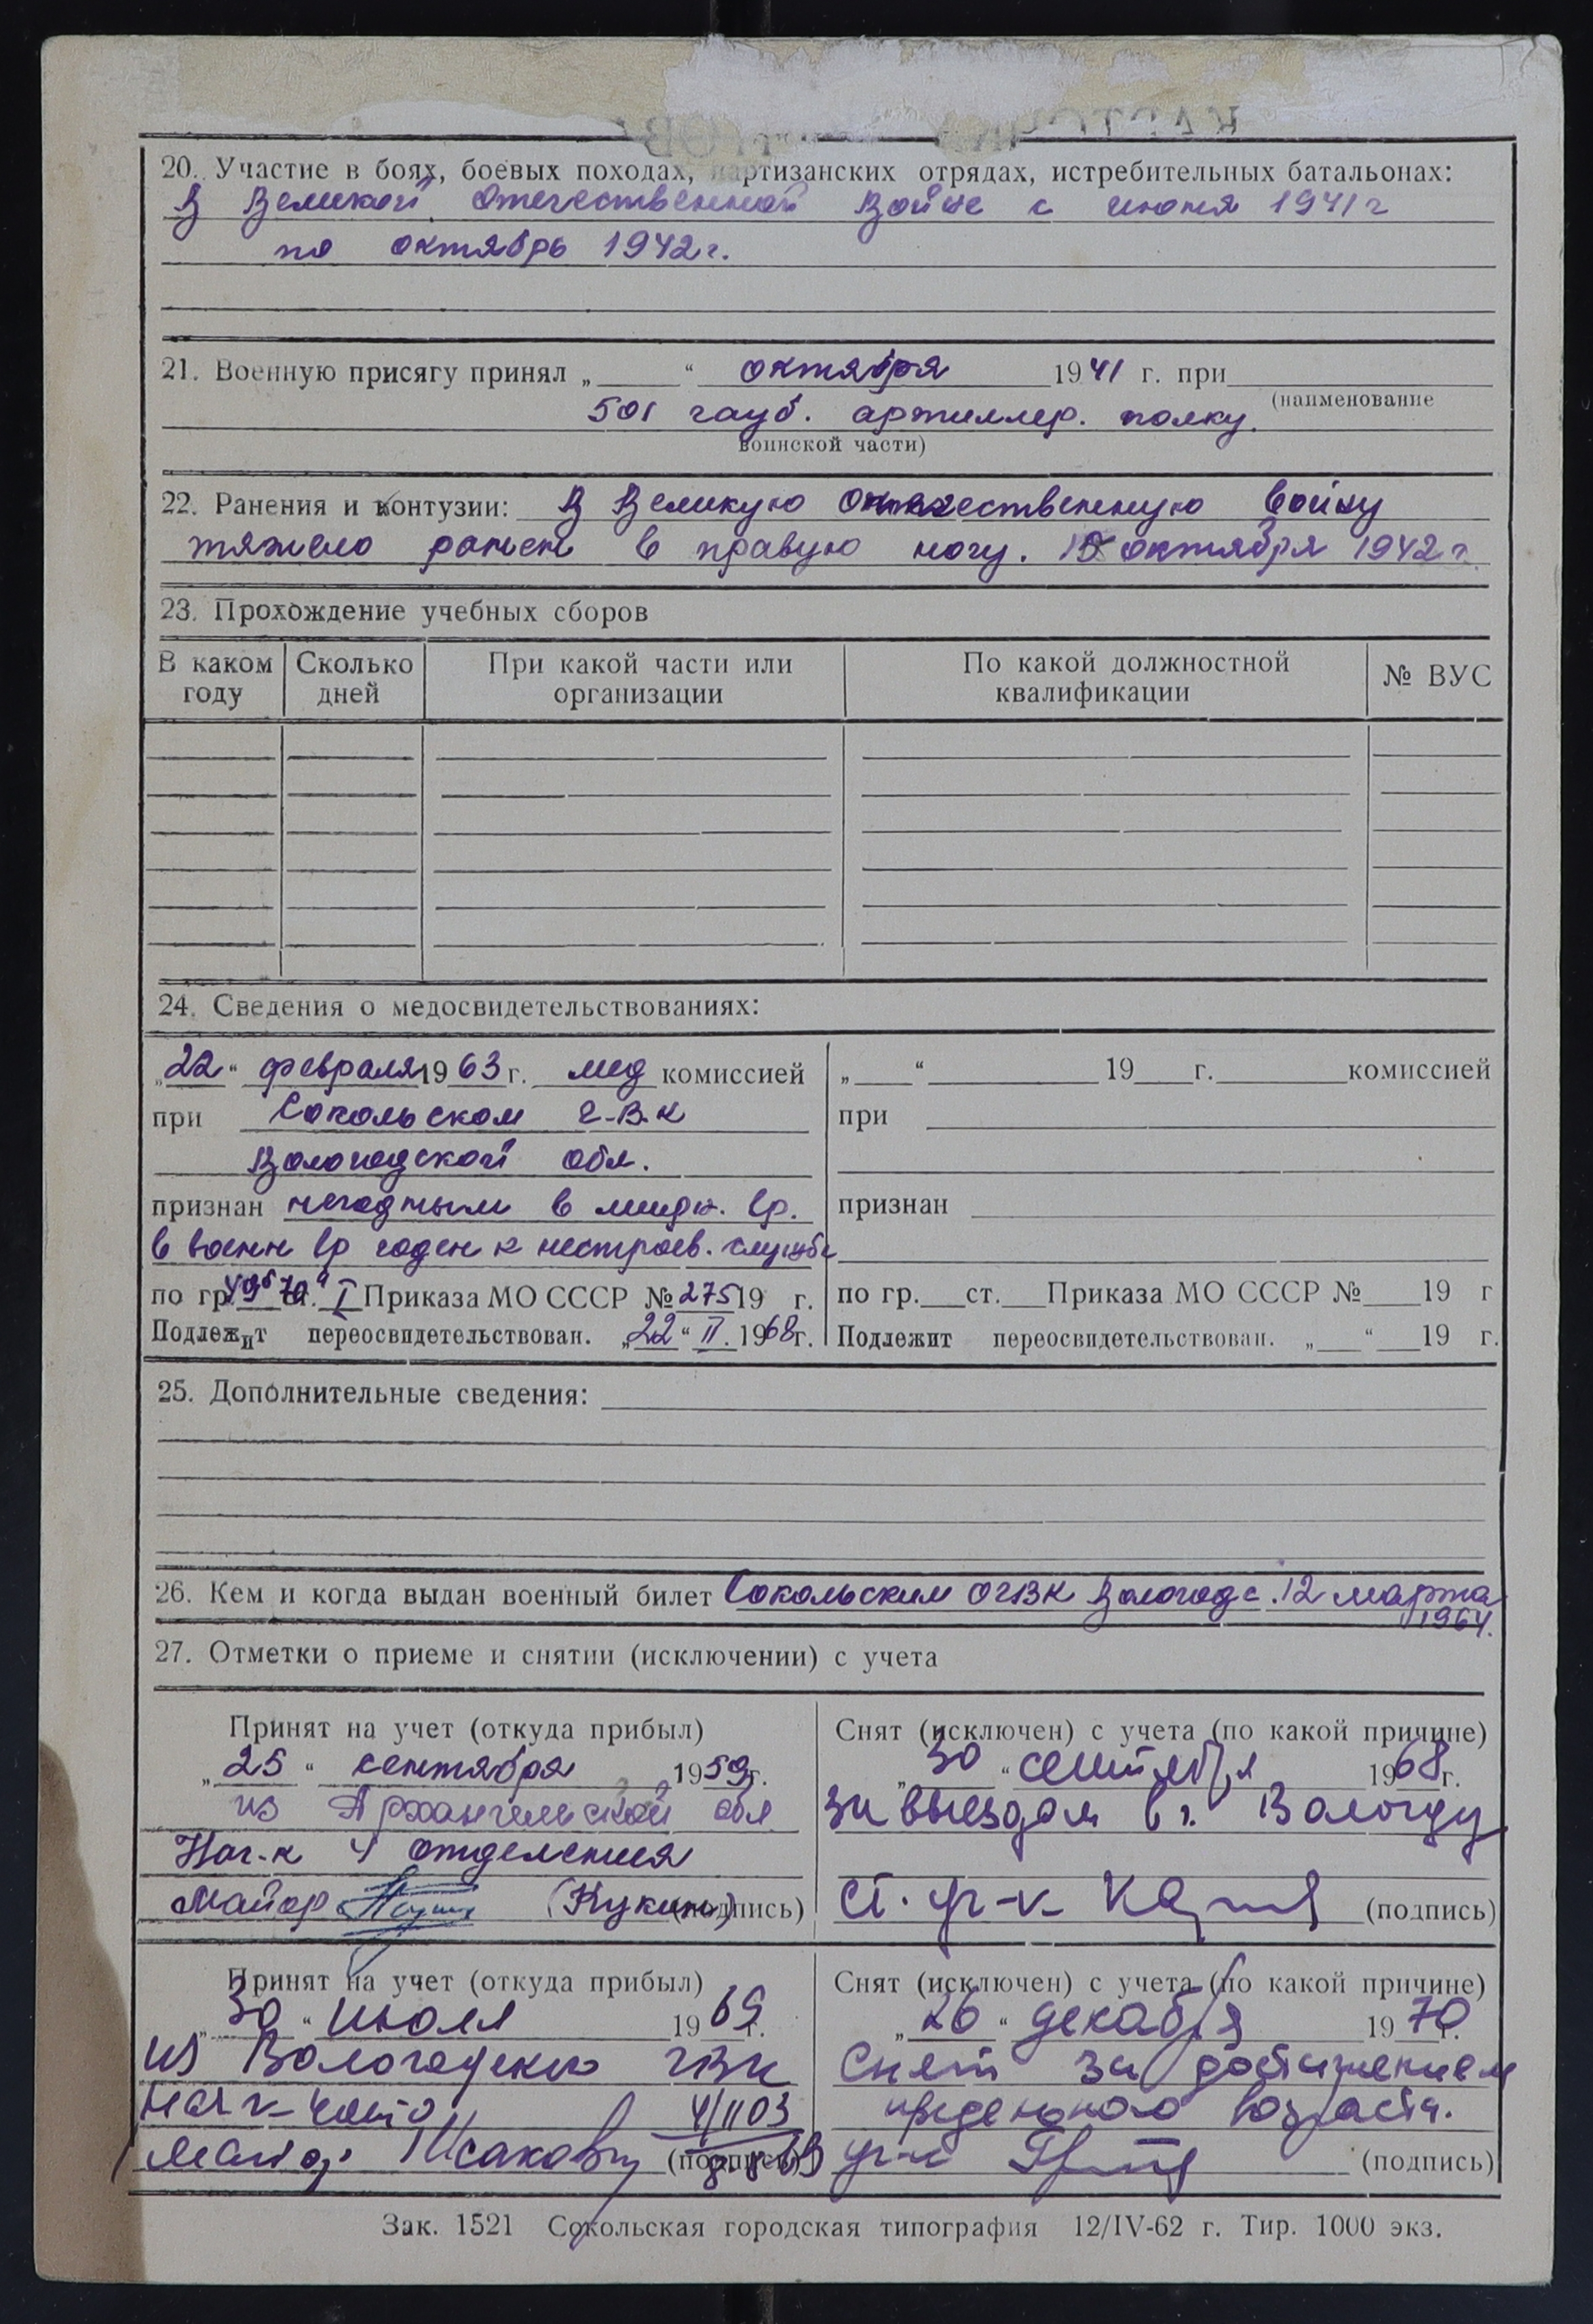 20. Участие в боях, боевых походах, партизанских отрядах, истребительных батальонах:
В Великой Отечественной Войне с июня 1941 г
по октябрь 1942 г.
21. Военную присягу принял „ “ октября 1941 г. при
501 гауб. артиллер. полку.
(наименование
воинской части)
22. Ранения и контузии: В Великую Отечественную войну
тяжело ранен в правую ногу. октября 1942 г.
23. Прохождение учебных сборов
В каком году
Сколько дней
При какой части или организации
По какой должностной квалификации
№ ВУС
24. Сведения о медосвидетельствованиях:
„22“ февраля 1963 г. мед комиссией
при Сокольском г.В.К
Вологодской обл.
признан негодным в мирн. вр.
в военн вр годен к нестроев. службе
по гр. ст. I Приказа МО СССР № 275 19 г.
Подлежит переосвидетельствован. „22“ II. 1968г.
„ “ 19 г. комиссией
при
признан
по гр. ст. Приказа МО СССР № 19 г
Подлежит переосвидетельствован. „ “ 19 г.
25. Дополнительные сведения:
26. Кем и когда выдан военный билет Сокольским ОГВК Вологодс. 12 марта
1964.
27. Отметки о приеме и снятии (исключении) с учета
Принят на учет (откуда прибыл)
„25“ сентября 1959г.
из Архангельской обл
Нач-к 4 отделения
майор (Кукин) (подпись)
Снят (исключен) с учета (по какой причине)
„30“ сентября 1968г.
за выездом в г. Вологду
ст. (подпись)
Принят на учет (откуда прибыл)
„30“ июля 1969 г.
из Вологодского ГВК
4/1103
майор Исакович (подпись)
Снят (исключен) с учета (по какой причине)
„26“ декабря 1970 г.
Снят за достижением
предельного возраста.
(подпись)
Зак. 1521 Сокольская городская типография 12/IV-62 г. Тир. 1000 экз.